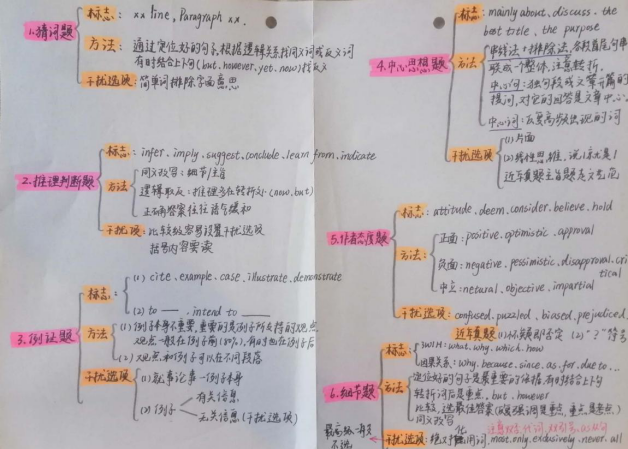 1.猜词题
标志: xx line, Paragraph xx.
方法: 通过定位好的句子,根据逻辑关系找同义词或反义词
有时结合上下句(but.however.yet.now)找反义
干扰选项: 简单词排除字面意思
2.推理判断题
标志: infer. imply. suggest. conclude. learn from. indicate
方法
同义改写: 细节/主旨
逻辑取反: 推理多在转折处(now.but)
正确答案往往语气缓和
干扰项: 比较级容易设置干扰选项
括号内容要读
3.例证题
标志:
(1) cite. example. case. illustrate. demonstrate
(2) to __ . intend to __
方法
(1) 例子本身不重要,重要的是例子所支持的观点
观点一般在例子前(80%),有时也在例子后
(2) 观点和例子可以在不同段落
干扰选项
(1) 就事论事—例子本身
(2) 例子
有关信息
无关信息(干扰选项)
4.中心思想题
标志: mainly about. discuss. the
best title. the purpose
方法
串线法+排除法, 各段首尾句串
联成一个整体,注意转折.
中心句: 独句段或文章开篇的
提问,对它的回答是文章中心.
中心词: 反复高频出现的词
干扰选项
(1) 片面
(2)
5.作者态度题
标志: attitude. deem. consider. believe. hold
方法:
正面: positive. optimistic. approval
负面: negative. pessimistic. disapproval. cri
tical
中立: netural. objective. impartial
干扰选项: confused. puzzled. biased. prejudiced.
近年真题
(2) "?" 符号
6.细节题
标志:
5W1H: what. why. which. how
因果关系: why. because. since. as. for. due to...
方法
定位好的句子是最重要的依据,有时结合上下句
转折词后是重点. but. however
比较选最佳答案
同义改写
干扰选项: 绝对化用词. most. only. exclusively. never. all
最高级一般
不选